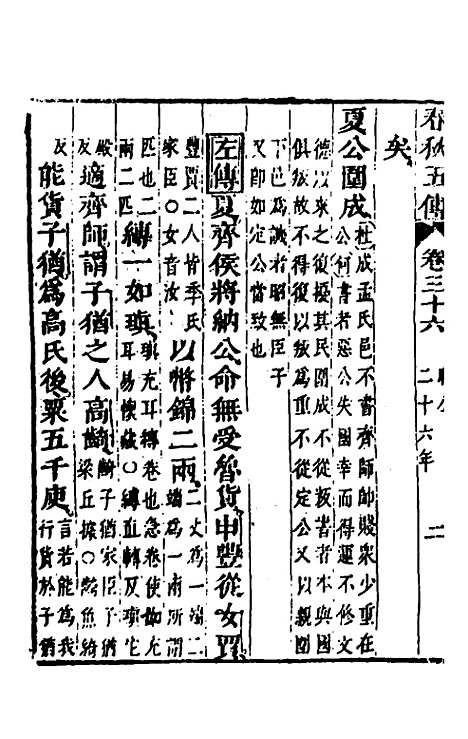 春秋五傳 卷三十六 昭公 二十六年 二
矣
夏公圍成 杜成孟氏邑不書齊師帥賤眾少重在公何書者惡公失國幸而得運不修文
德以來之復擾其民圍成不從叛書者本與國俱叛故不得復以叛為重不從定公又以親圍
下邑為譏者昭無臣子又即如定公當致也
左傳夏齊侯將納公命無受魯貨申豐從女賈
豐賈二人皆季氏家臣○女音汝以幣錦二兩二丈為一端二端為一兩所謂
匹也二兩二匹縛一如瑱瑱充耳縛卷也急卷使如充耳易懷藏○縛直轉反瑱它
殿反適齊師謂子猶之人高齮齮子猶家臣子猶梁丘據○齮魚綺
反能貨子猶為高氏後粟五千庾言若能為我行貨於子猶